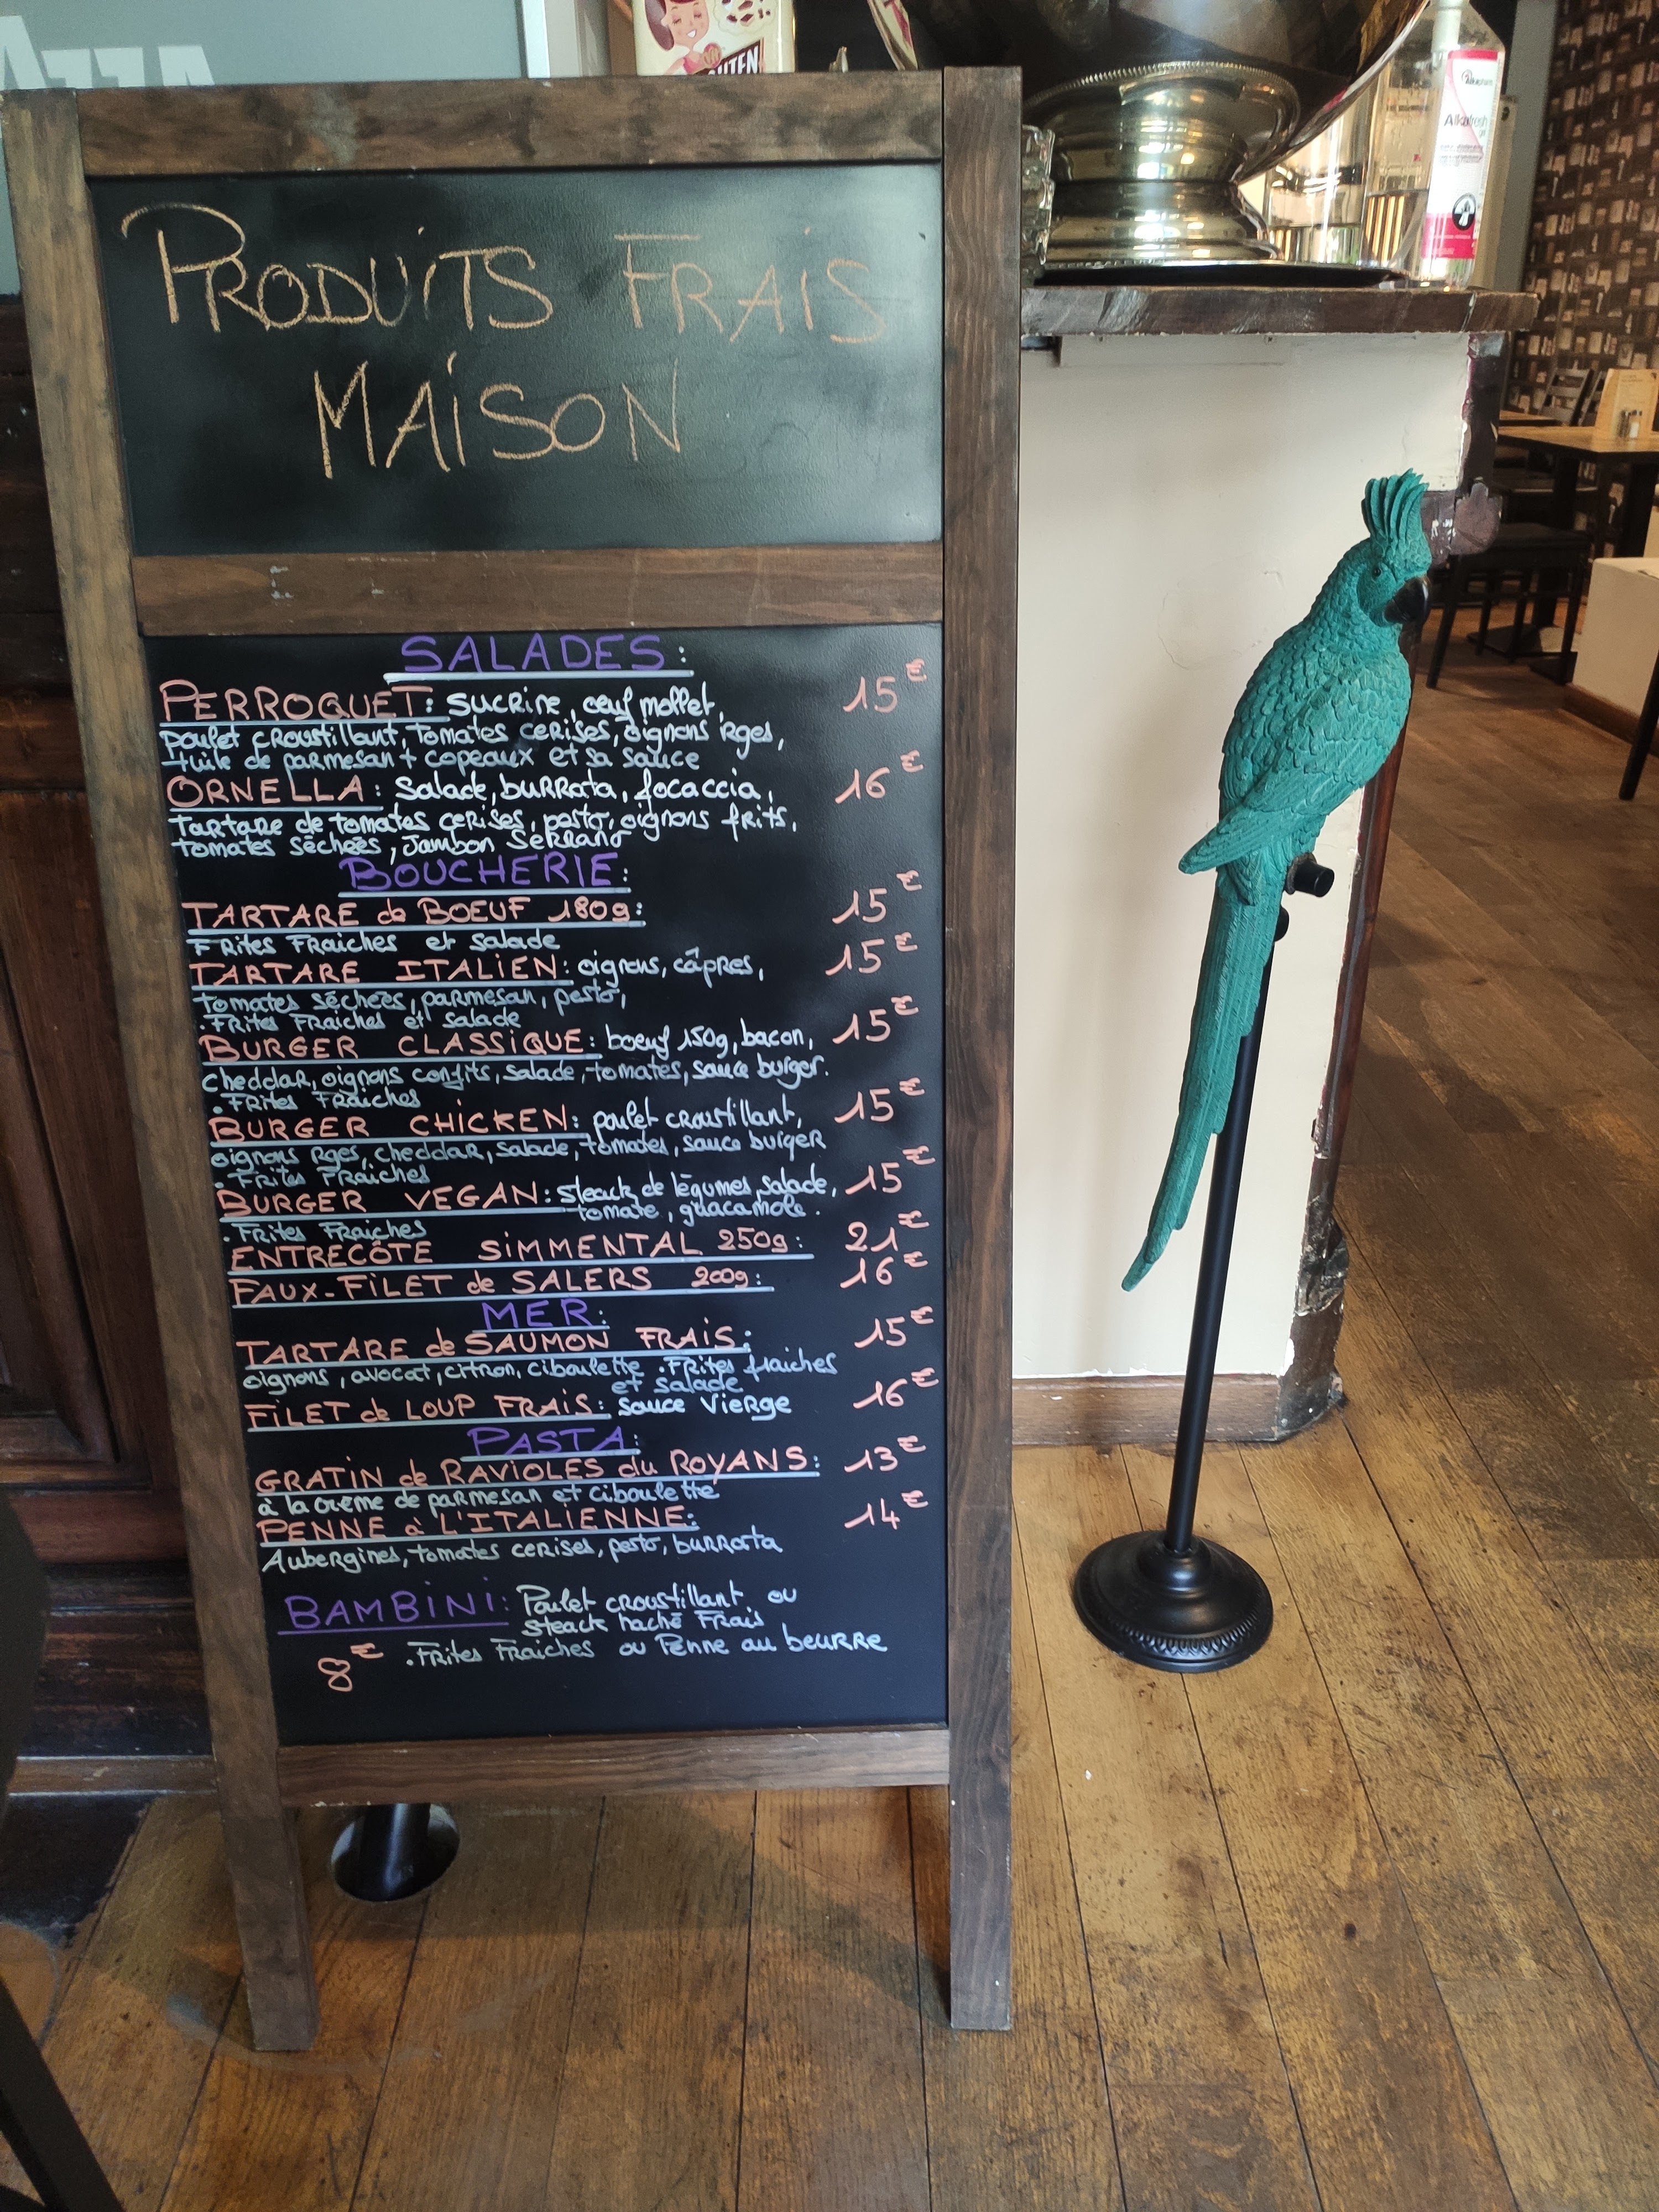 AZZA
UTEN
Alkafresh
PRODUITS FRAIS
MAISON
SALADES:
PERROQUET: sucrine, œuf mollet, 15€
poulet croustillant, tomates cerises, oignons rges,
tuile de parmesan + copeaux et sa sauce
ORNELLA: Salade, burrata, focaccia, 16€
tartare de tomates cerises, pesto, oignons frits,
tomates séchées, Jambon Serrano
BOUCHERIE:
TARTARE de BOEUF 180g: 15€
Frites Fraiches et salade
TARTARE ITALIEN: oignons, câpres, 15€
tomates séchées, parmesan, pesto,
.Frites Fraiches et salade
BURGER CLASSIQUE: boeuf 150g, bacon, 15€
cheddar, oignons confits, salade, tomates, sauce burger.
.Frites Fraiches
BURGER CHICKEN: poulet croustillant, 15€
oignons rges, cheddar, salade, tomates, sauce burger
.Frites Fraiches
BURGER VEGAN: steack de légumes, salade, 15€
tomate, guacamole.
.Frites Fraiches
ENTRECÔTE SIMMENTAL 250g: 21€
FAUX-FILET de SALERS 200g: 16€
MER:
TARTARE de SAUMON FRAIS: 15€
oignons, avocat, citron, ciboulette .Frites fraiches
et salade
FILET de LOUP FRAIS: sauce Vierge 16€
PASTA:
GRATIN de RAVIOLES du ROYANS: 13€
à la crème de parmesan et ciboulette
PENNE à L'ITALIENNE: 14€
Aubergines, tomates cerises, pesto, burrata
BAMBINI: Poulet croustillant ou
steack haché Frais
8€ .Frites Fraiches ou Penne au beurre